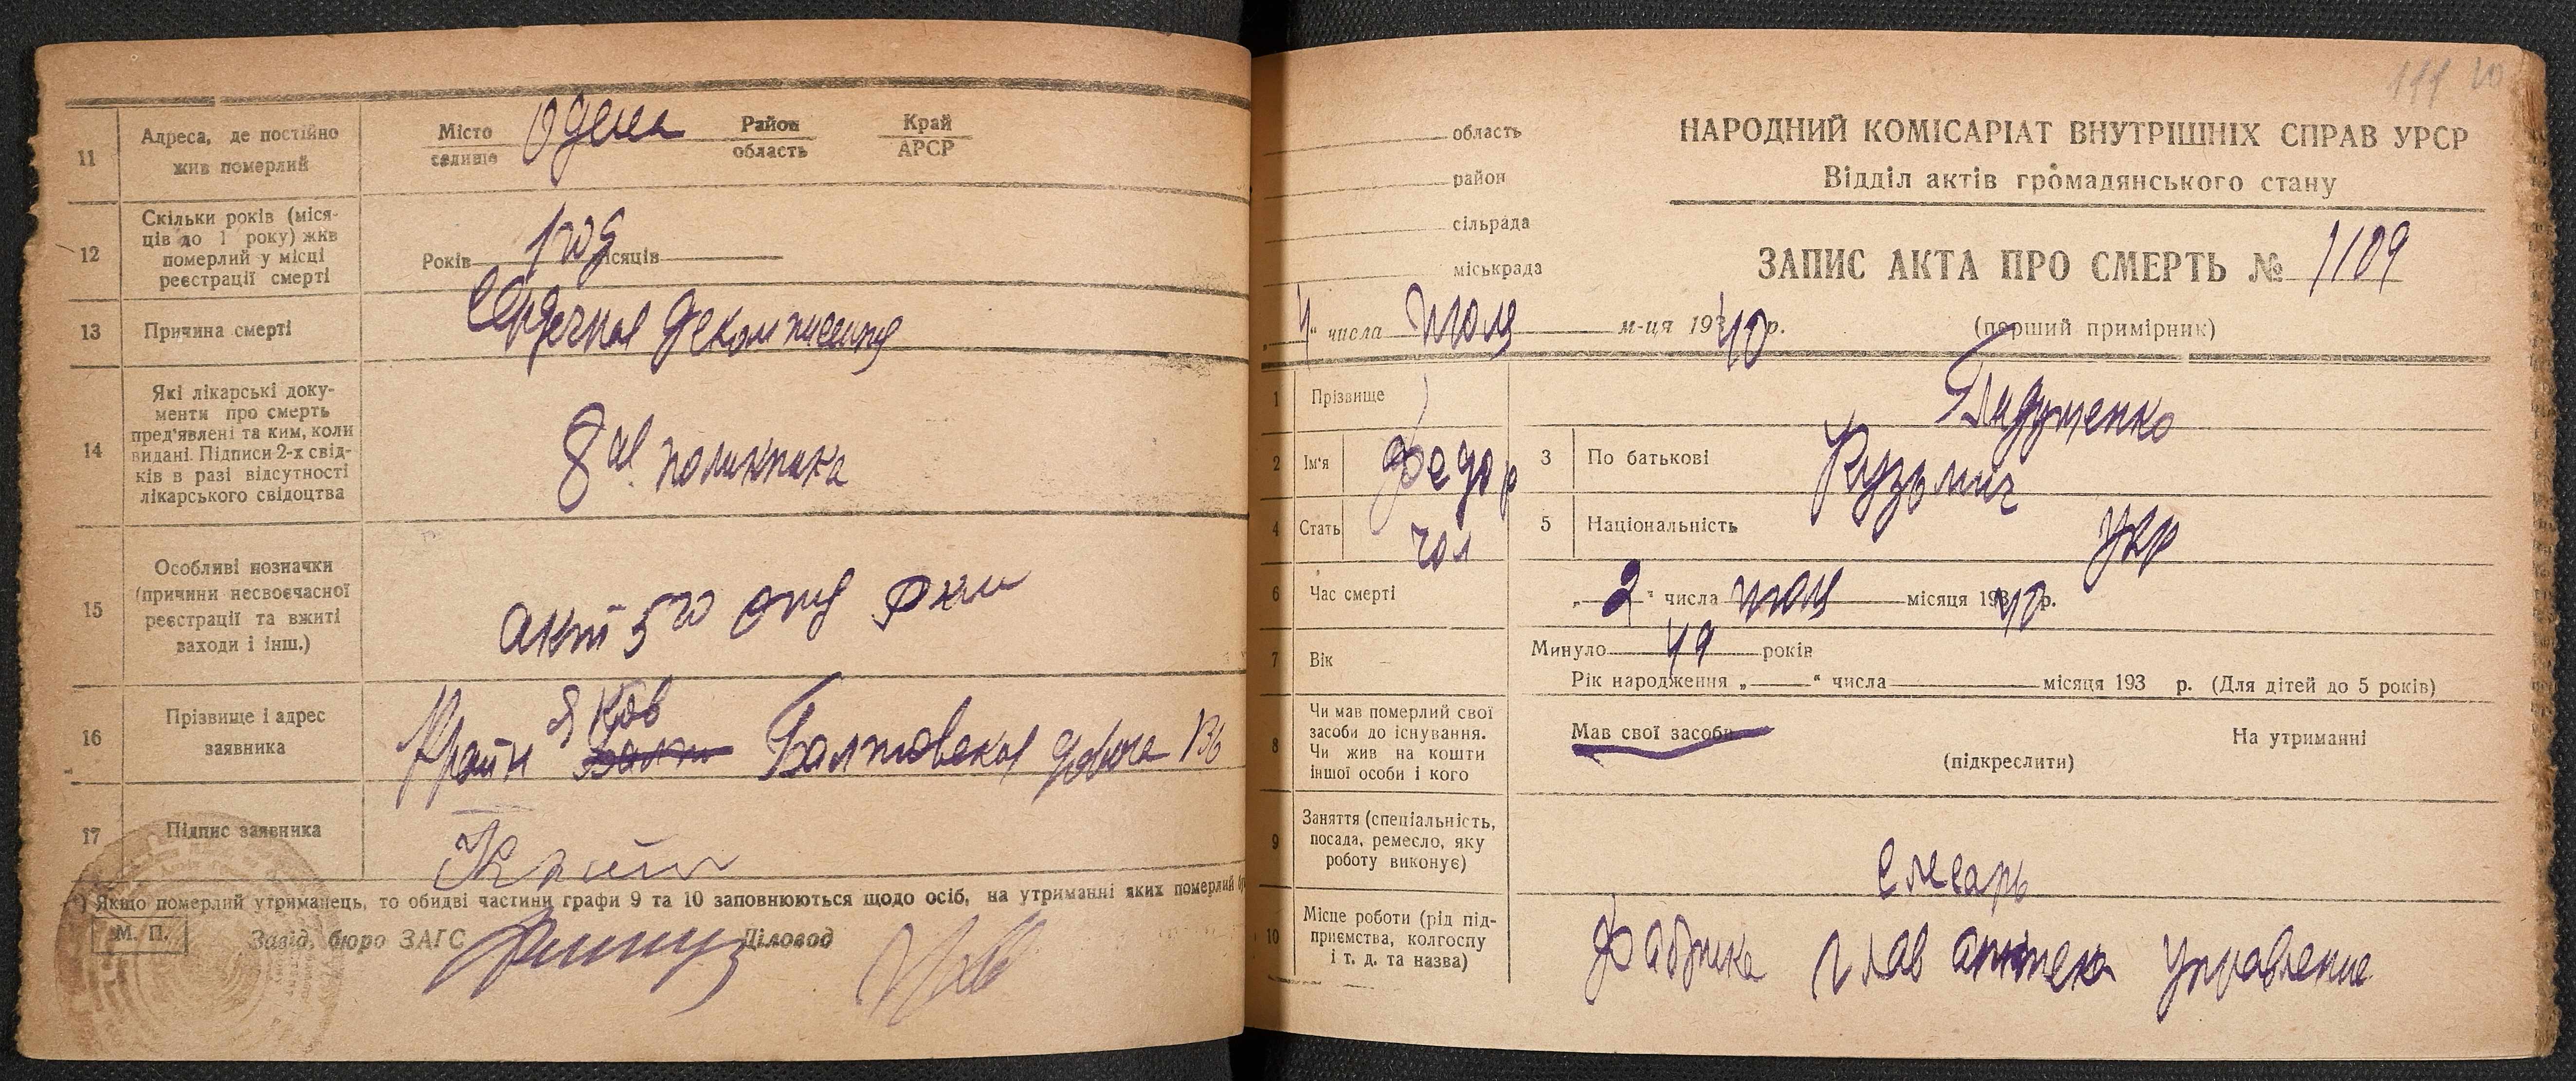 11
Адреса, де постійно
жив померлий
Місто
селище
Одеса
Район
область
Край
АРСР
12
Скільки років (міся-
ців до 1 року) жив
померлий у місці
реєстрації смерті
Років 1 год місяців
13
Причина смерті
Сердечная декомпенсация
14
Які лікарські доку-
менти про смерть
пред'явлені та ким, коли
видані. Підписи 2-х свід-
ків в разі відсутності
лікарського свідоцтва
8 ая поликлиника
15
Особливі позначки
(причини несвоєчасної
реєстрації та вжиті
заходи і інш.)
акт 5го отд РКМ
16
Прізвище і адрес
заявника
Яков
Балт Балтовская дорога 136
17
Підпис заявника
Якщо померлий утриманець, то обидві частини графи 9 та 10 заповнюються щодо осіб, на утриманні яких померлий
М. П.
Завід. бюро ЗАГС
Діловод
111 20
область
район
сільрада
міськрада
НАРОДНИЙ КОМІСАРІАТ ВНУТРІШНІХ СПРАВ УРСР
Відділ актів громадянського стану
ЗАПИС АКТА ПРО СМЕРТЬ № 1109
4 " числа июля м-ця 1940 р.
(перший примірник)
1
Прізвище
2
Ім'я
Федор
3
По батькові
Кузьмич
4
Стать
чол
5
Національність
укр
6
Час смерті
„ 2 " числа июля місяця 1940 р.
7
Вік
Минуло 49 років
Рік народження „ " числа місяця 193 р. (Для дітей до 5 років)
8
Чи мав померлий свої
засоби до існування.
Чи жив на кошти
іншої особи і кого
Мав свої засоби
(підкреслити)
На утриманні
9
Заняття (спеціальність,
посада, ремесло, яку
роботу виконує)
слесарь
10
Місце роботи (рід під-
приємства, колгоспу
і т. д. та назва)
Фабрика Глав аптека Управление